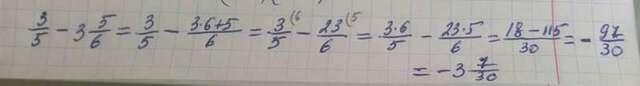 3/5 - 3 5/6 = 3/5 - 3·6+5/6 = 3/5 (6 - 23/6 (5 = 3·6/5 - 23·5/6 = 18-115/30 = - 97/30
= -3 7/30